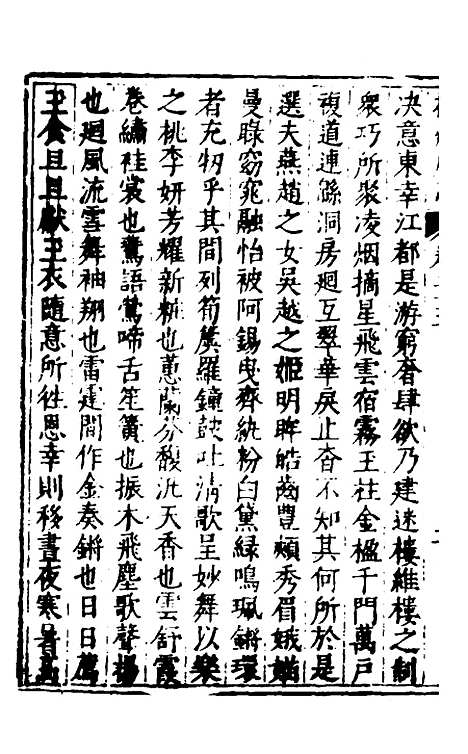 决意東幸江都是游窮奢肆欲乃建迷樓維樓之制
衆巧所聚凌烟摘星飛雲宿霧玉柱金楹千門萬戸
複道連緜洞房廻互翠華戾止杳不知其何所於是
選夫燕趙之女吳越之姬明眸皓齒豐頰秀眉娥媌
曼睩窈窕融怡被阿錫曳齊紈粉白黛緑鳴珮鏘環
者充牣乎其間列筍簴羅鐘鼓吐清歌呈妙舞以樂
之桃李妍芳耀新粧也蕙蘭芬馥沇天香也雲舒霞
卷繡袿裳也鸎語鶯啼舌笙簧也振木飛塵歌聲揚
也廻風流雪舞袖翔也雷霆間作金奏鏘也日日薦
玉食旦旦獻玉衣隨意所徃恩幸則移晝夜寒暑